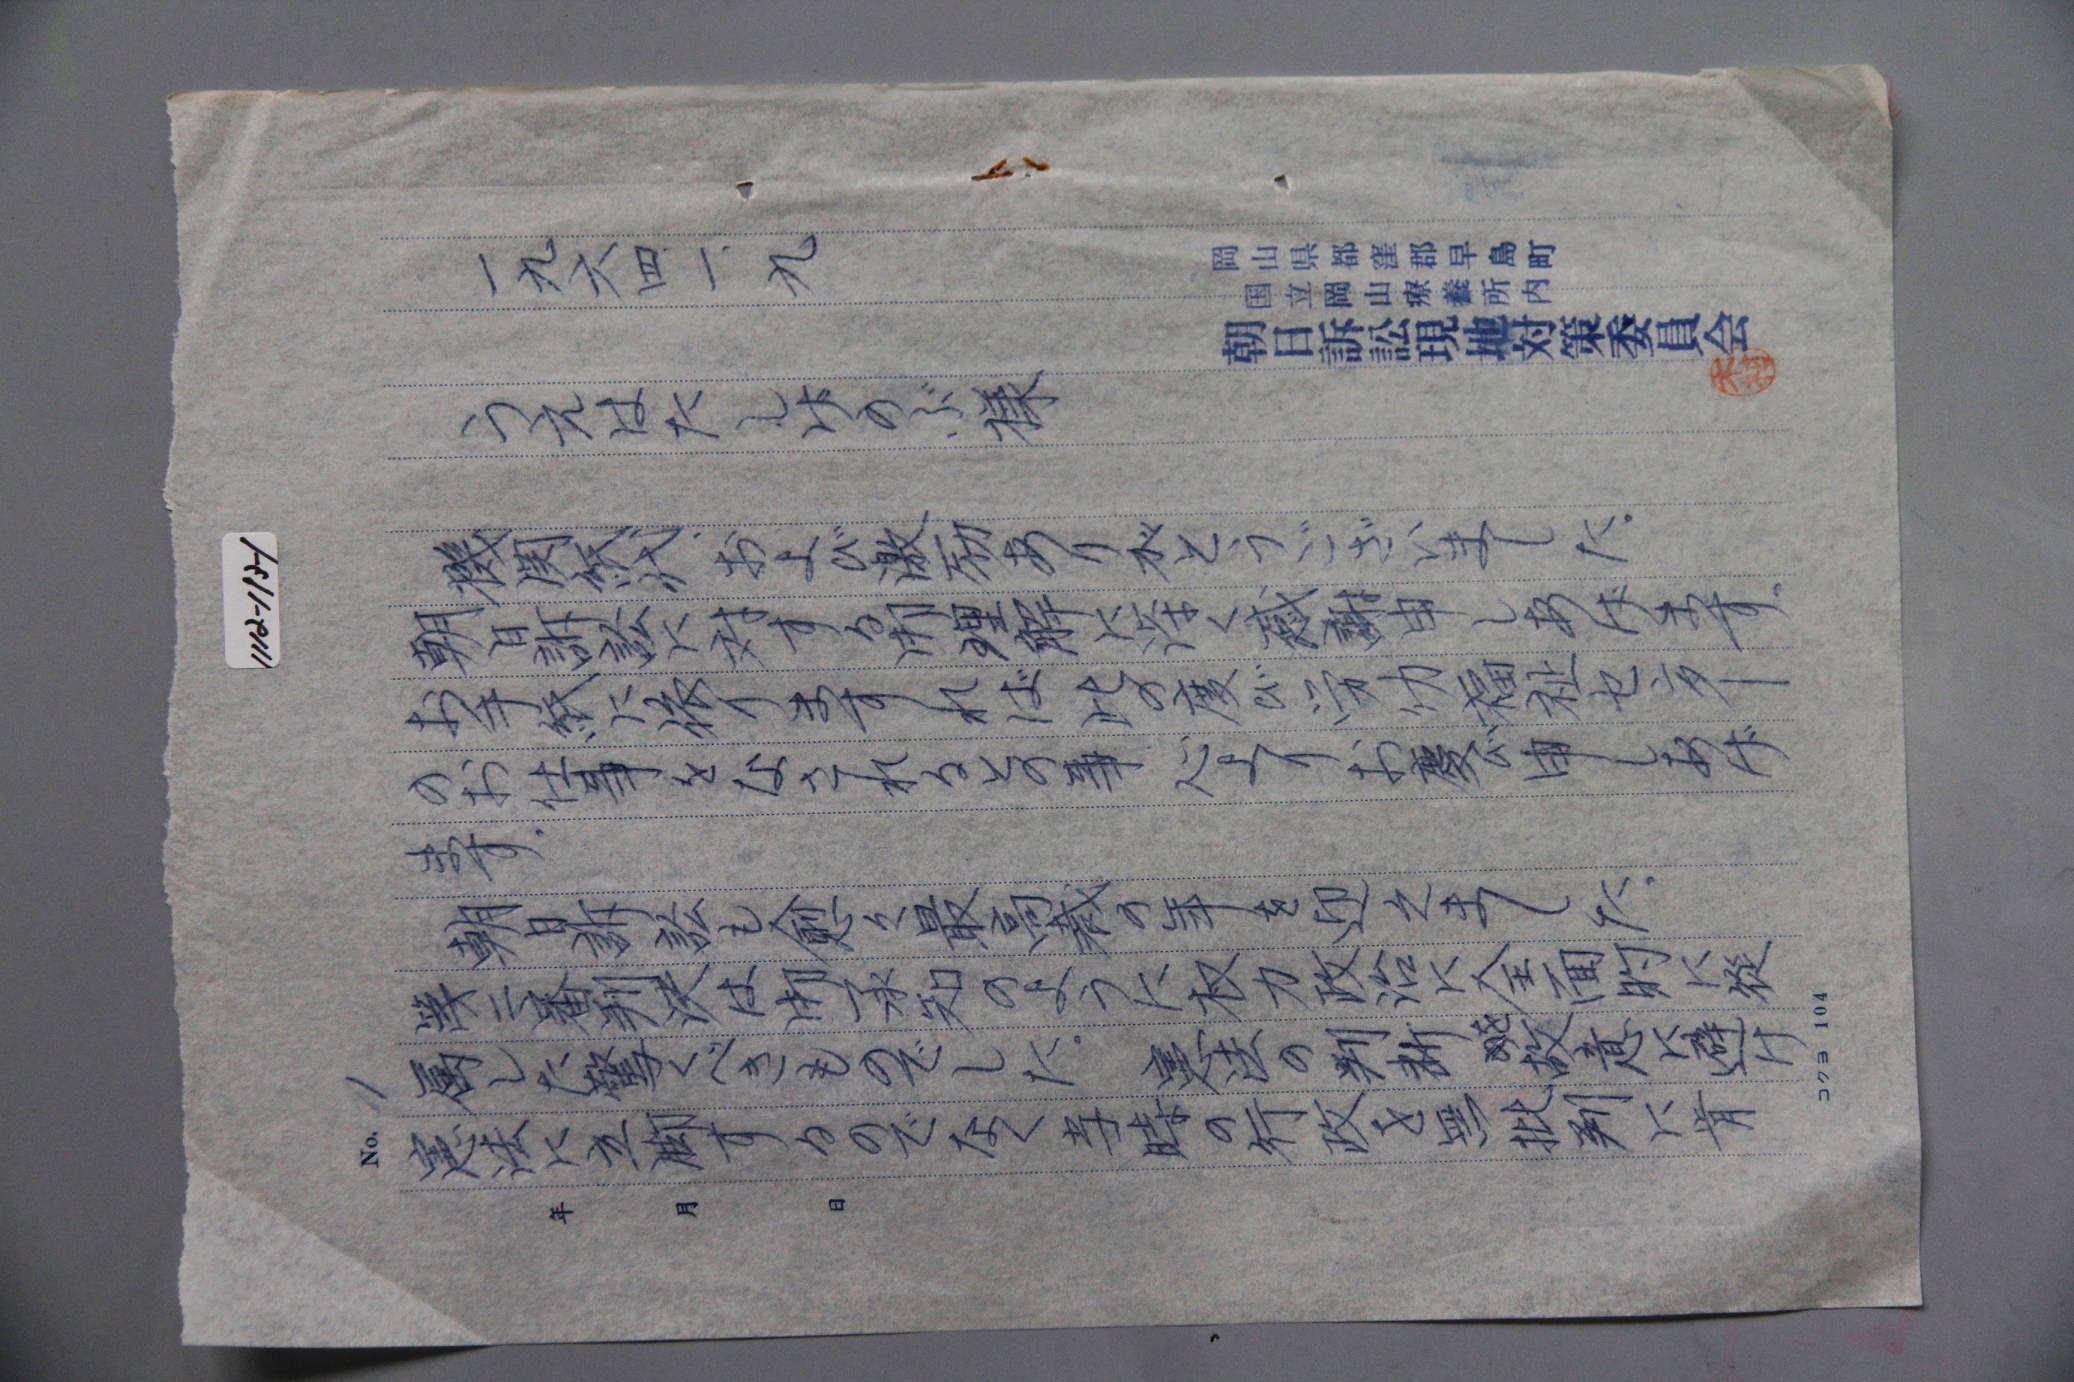 一九六四、一、九
岡山県都窪郡早島町
国立岡山療養所内
朝日訴訟現地対策委員会
うえはたしげのぶ様
機関紙代、および激励ありがとうございました。
朝日訴訟に対する御理解に深く感謝申しあげます。
お手紙に依りますれば此の度 福祉センター
のお仕事をなされるとの事 心よりお慶び申しあげ
ます。
朝日訴訟も愈々最高裁の年を迎えました。
第二審判決は御承知のように权力政治に全面的に從
属した驚くべきものでした。憲法の判断 故意に避け
憲法に立脚するのでなく当時の行政を無批判に肯
No. 1
年 月 日
コクヨ 104